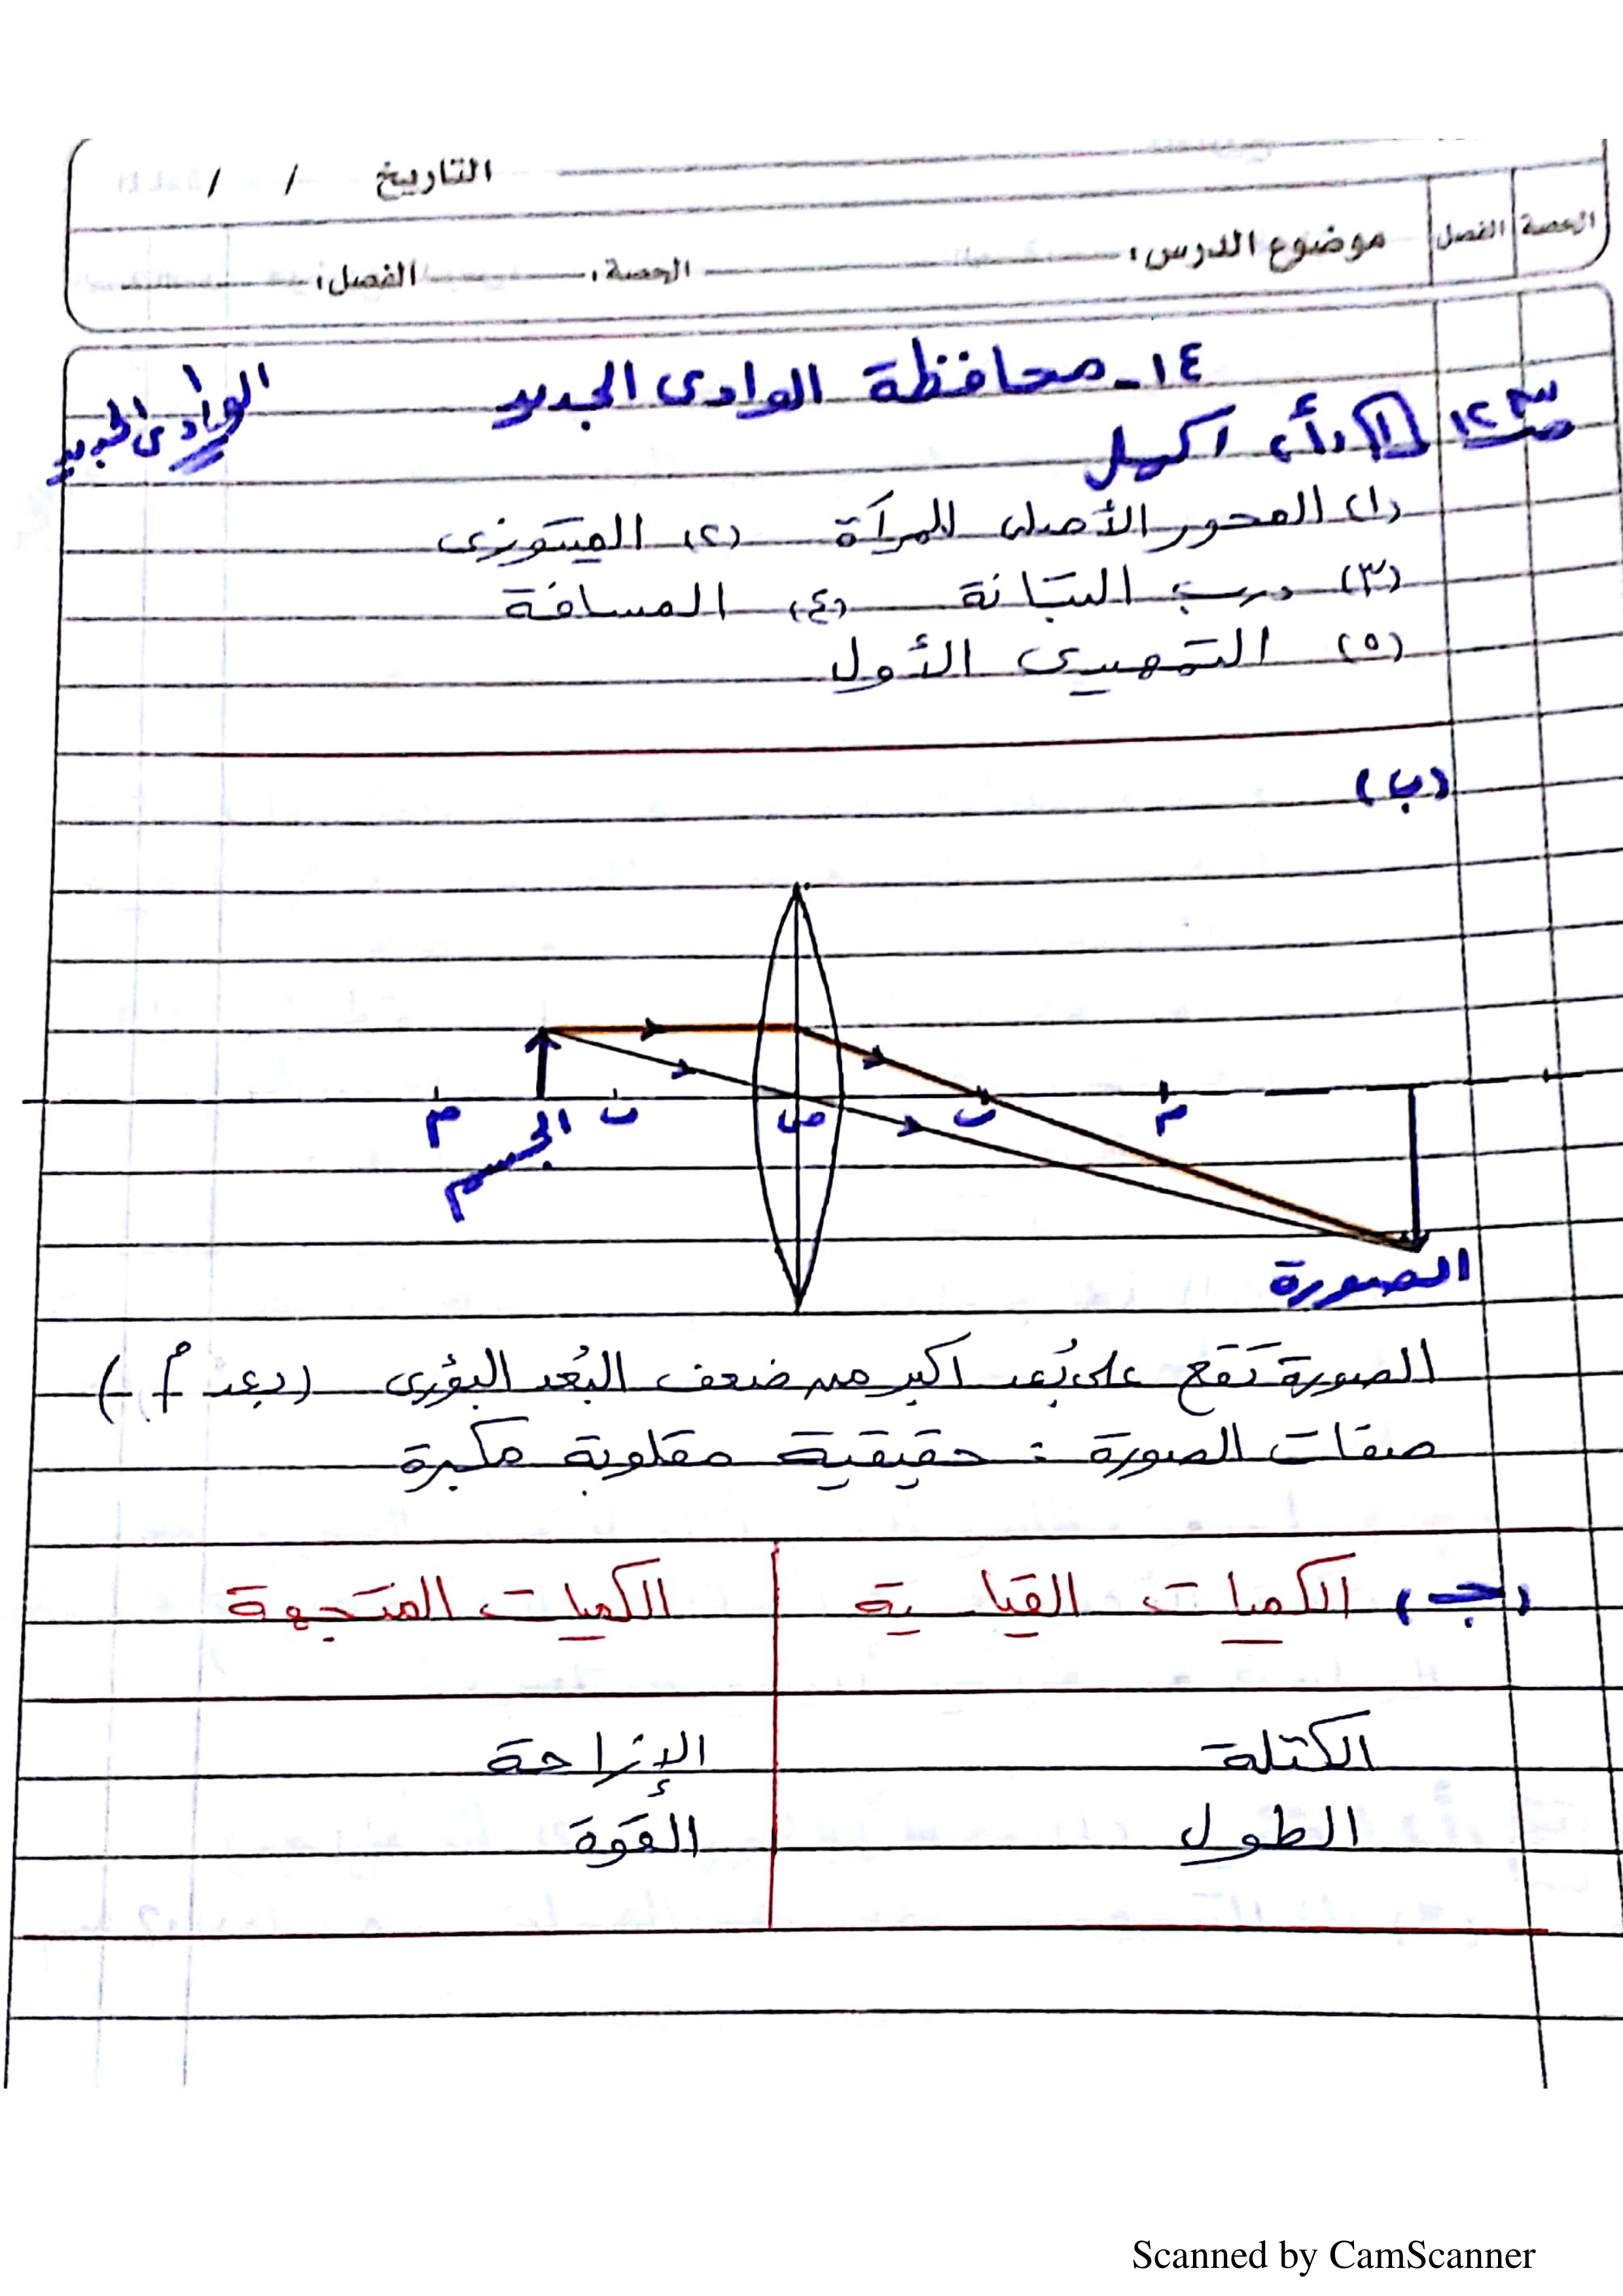 التاريخ / /
الحصة الفصل موضوع الدرس: الحصة: الفصل:
١٤ - محافظة الوادى الجديد
الوادى الجديد
صـ ١٢٣ [١] (أ) أكمل
(١) المحور الأصلى للمرآة (٢) الميتوزى
(٣) درب التبانة (٤) المسافة
(٥) التمهيدى الأول
(ب)
م الجسم ب ص ب م
الصورة
الصورة تقع على بُعد أكبر من ضعف البُعد البؤرى (بعد م)
صفات الصورة : حقيقية مقلوبة مكبرة
(جـ) الكميات القياسية الكميات المتجهة
الكتلة الإزاحة
الطول القوة
Scanned by CamScanner